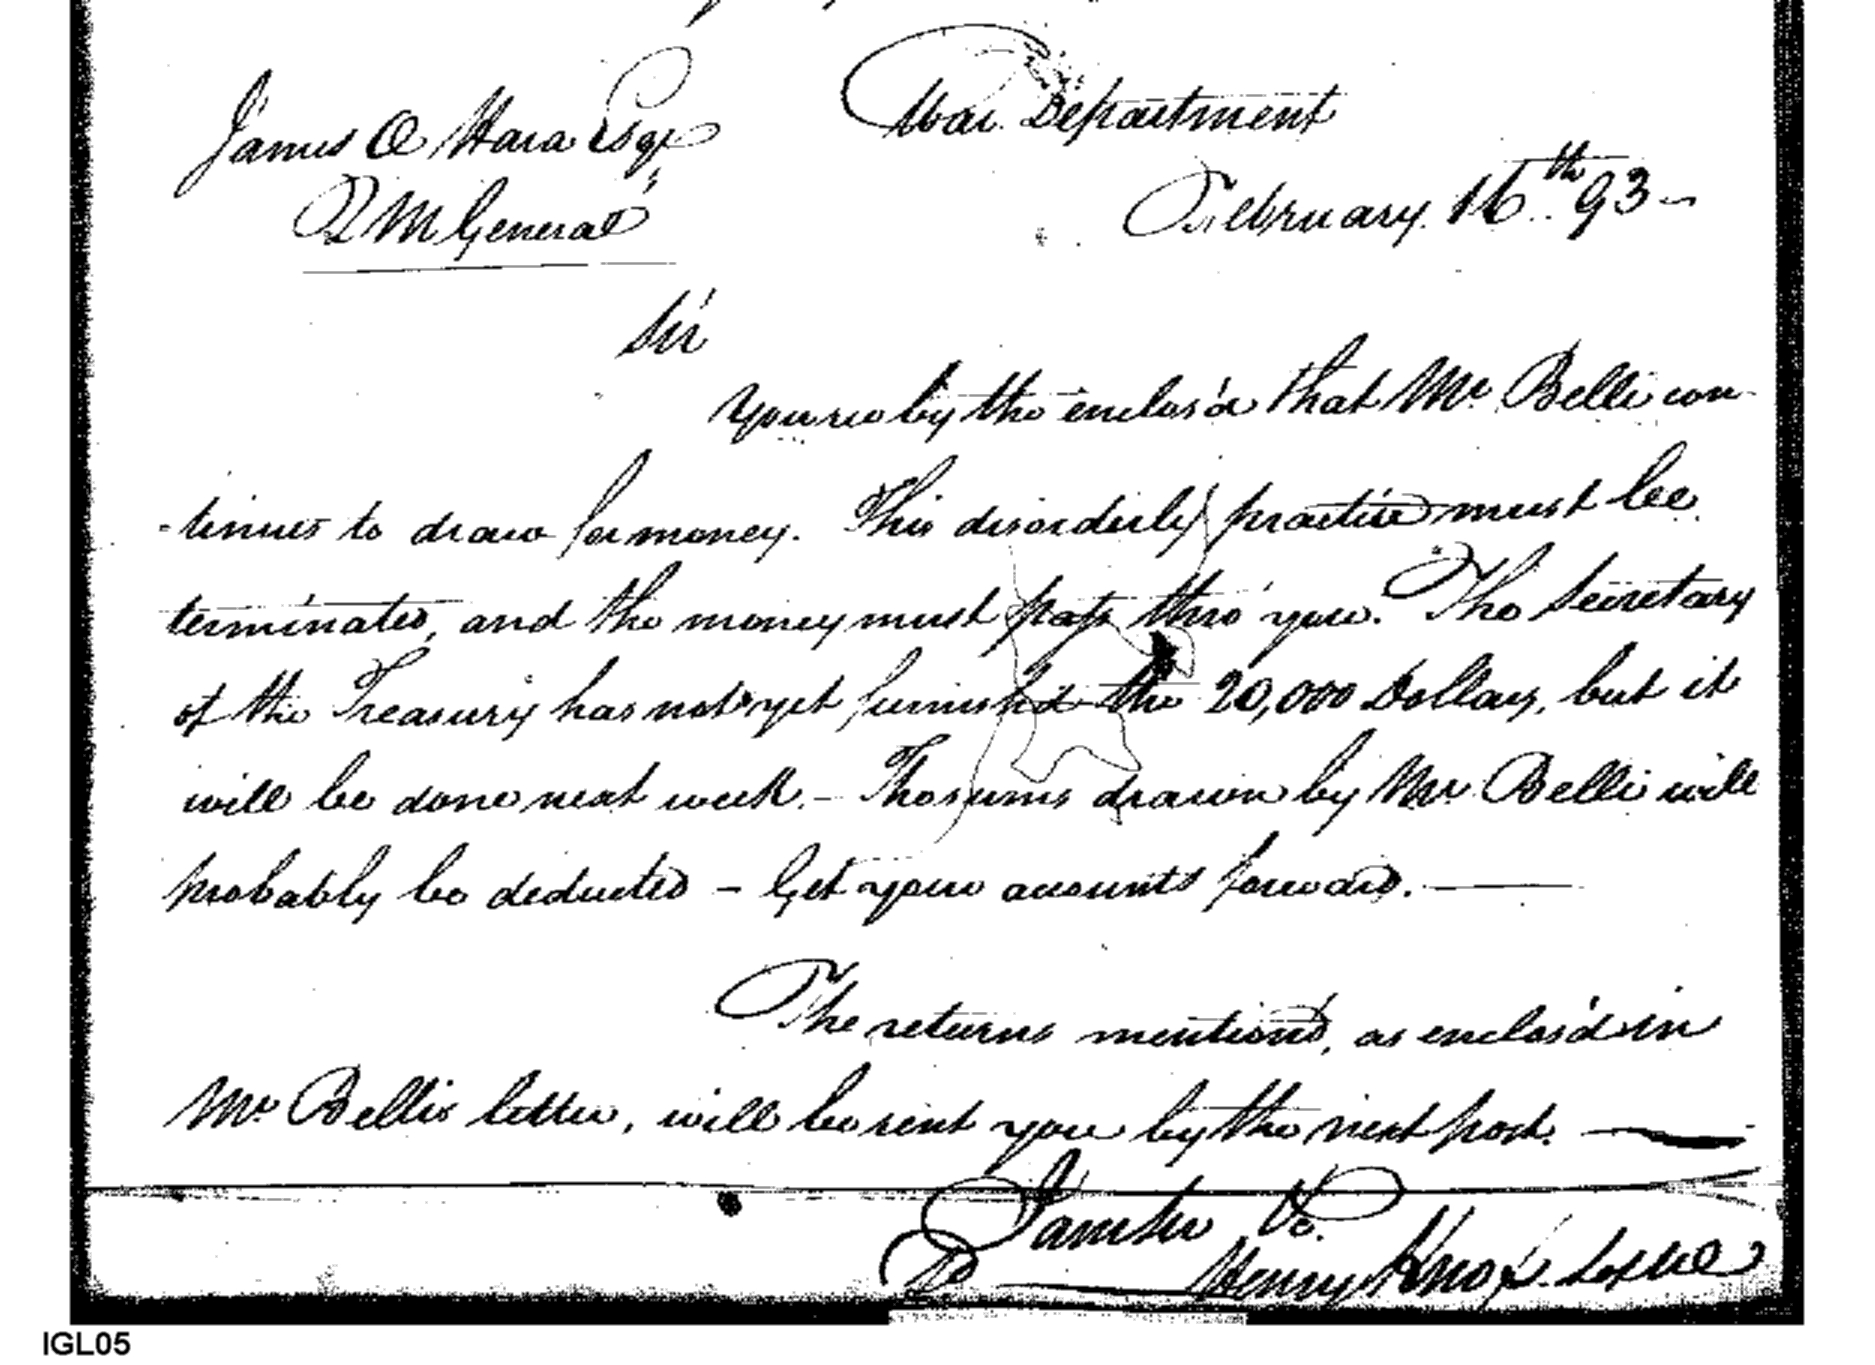 James O Hara Esqr
War Department
Q M General
February 16th 93 -
Sir
You see by the enclos'd that Mr. Belli con-
-tinues to draw for money. This disorderly practice must be
terminated, and the money must pass thro' you. The Secretary
of the Treasury has not yet furnished the 20,000 Dollars, but it
will be done next week. - The sums drawn by Mr. Belli will
probably be deducted - Get your accounts forward. —
The returns mentiond, as enclos'd in
Mr Bellis letter, will be sent you by the next post. —
I am Sir &c.
Henry Knox
IGL05